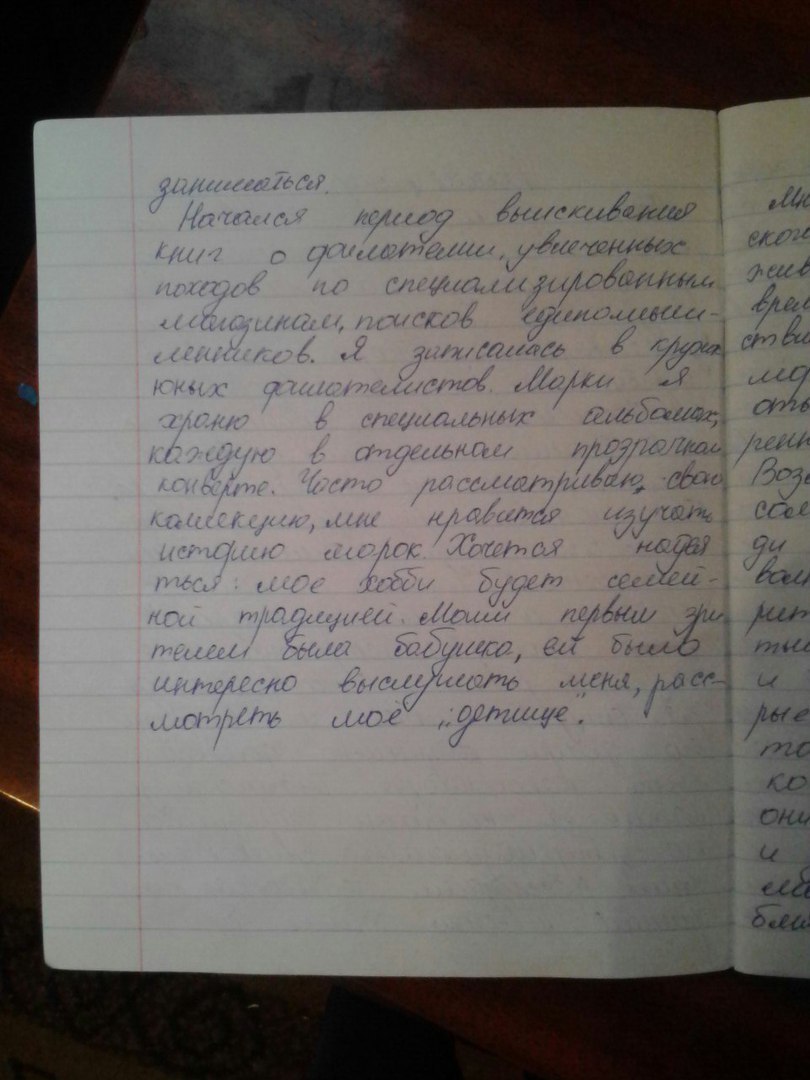 заниматься.
Начался период выискивания
книг о филателии, увлеченных
походов по специализированным
магазинам, поисков единомыш-
ленников. Я записалась в кружок
юных филателистов. Марки я
храню в специальных альбомах,
каждую в отдельном прозрачном
конверте. Часто рассматриваю свою
коллекцию, мне нравится изучать
историю марок. Хочется надея
ться: мое хобби будет семей-
ной традицией. Моим первым зри
телем была бабушка, ей было
интересно выслушать меня, расс-
мотреть моё „детище".
Мн
ског
жив
врем
стви
мо
оть
рен
Воз
сам
ди
вол
рит
ты
и
рые
то
ко
они
и
бли